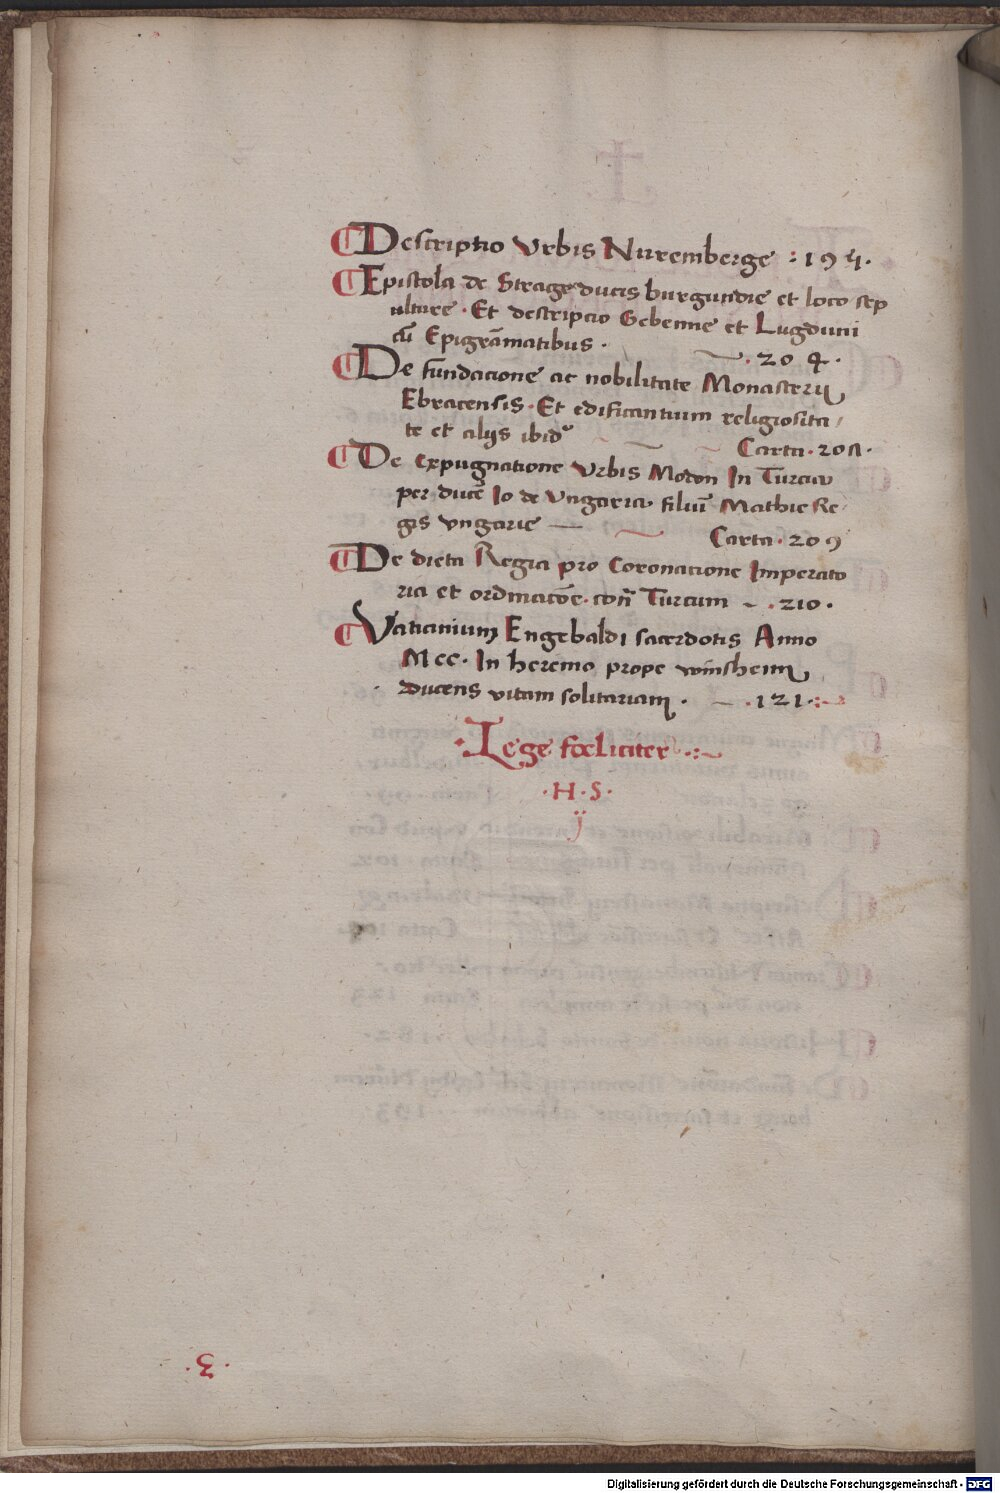 Descriptio Vrbis Nuremberge : 195.
Epistola de Strage ducis burgundie et loco sep
ulture . Et descripcio Gebenne et Lugduni
cū Epigrāmatibus . . 204 .
De fundacione ac nobilitate Monasterij
Ebracensis . Et edificantium religiosita/
te et alijs ibid' Carta . 207 .
De expugnatione Vrbis Modon In Turcia
per ducē Io de Vngaria filiū Mathie Re/
gis vngarie Carta . 209
De dieta Regia pro Coronatione Imperato
ria et ordinacōe . con̄ Turcum . 210 .
Vaticinium Engebaldi sacerdotis Anno
Mcc . In heremo prope winsheim
ducens vitam solitariam . . 121 .
Lege fœliciter
. H . S .
ÿ
. 3 .
Digitalisierung gefördert durch die Deutsche Forschungsgemeinschaft - DFG